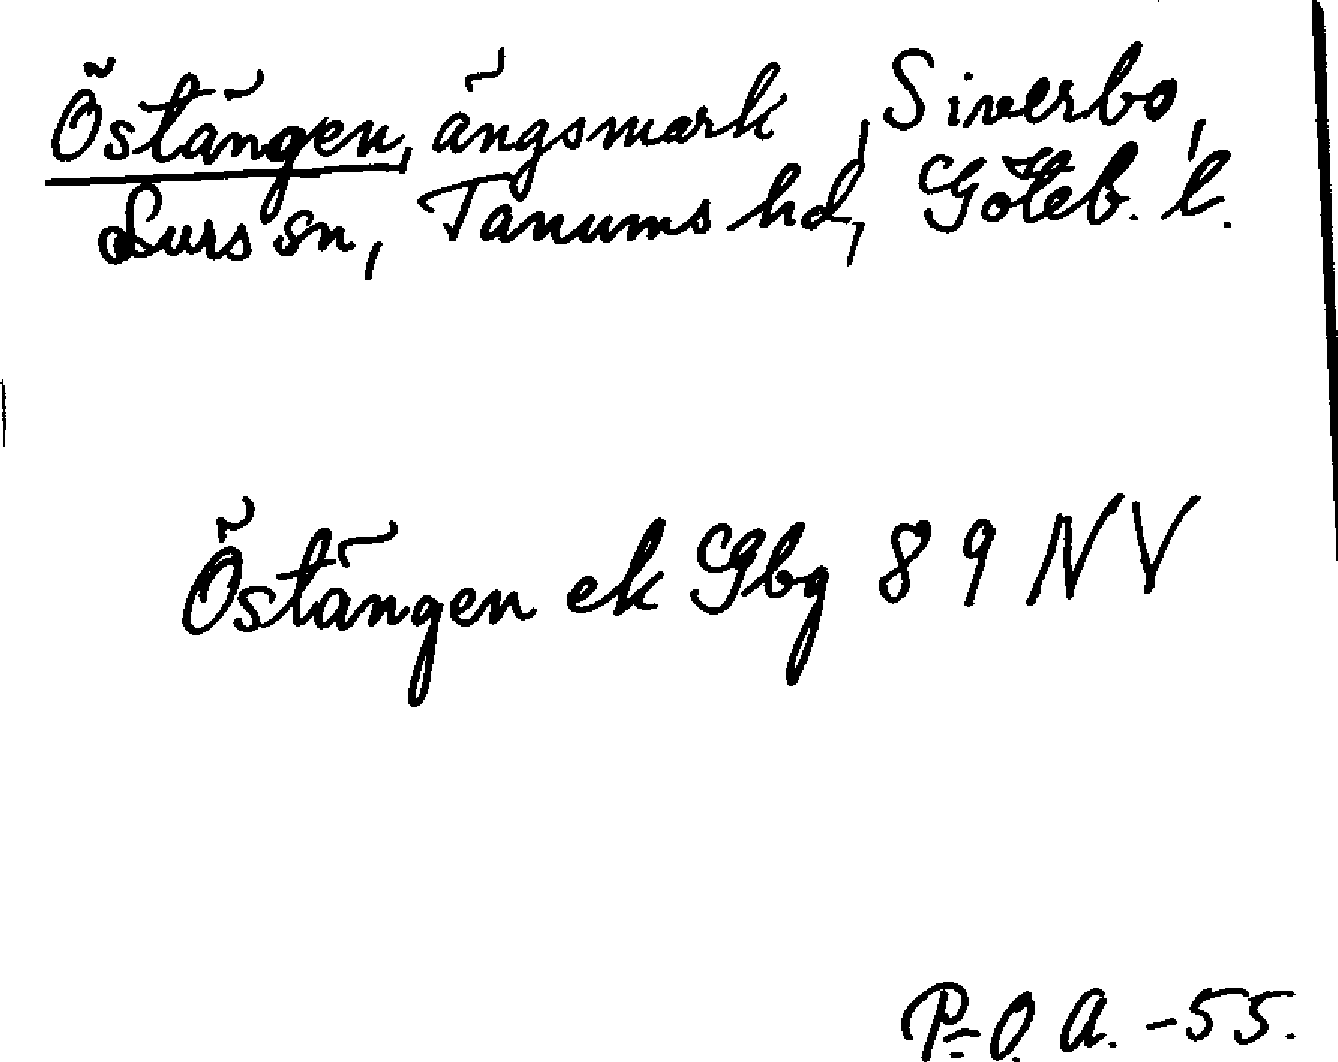 Östängen, ängsmark, Siverbo,
Lurs sn, Tanums hd, Göteb. l.
Östängen ek Gbg 89 NV
P-O. A. -55.